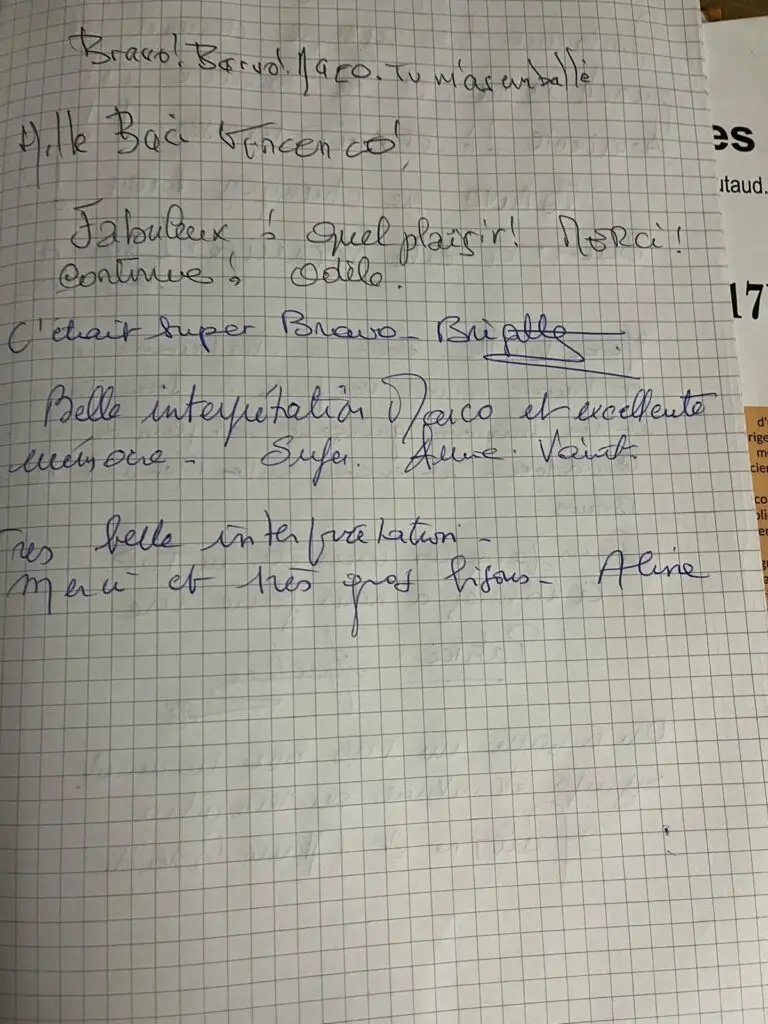 Bravo! Barvo! Маco. Tu m'as emballé
Mille Baci Vincenco!
Fabuleux ! Quel plaisir! MERCi!
Continue ! Odile.
C'était super Bravo - Brigitte
Belle interprétation Marco et excellente
mémoire - Super. Anne.
Très belle interprétation -
Merci et très gros bisous - Aline
es
utaud.
17
d'
rige
m
cien
co
pli
er